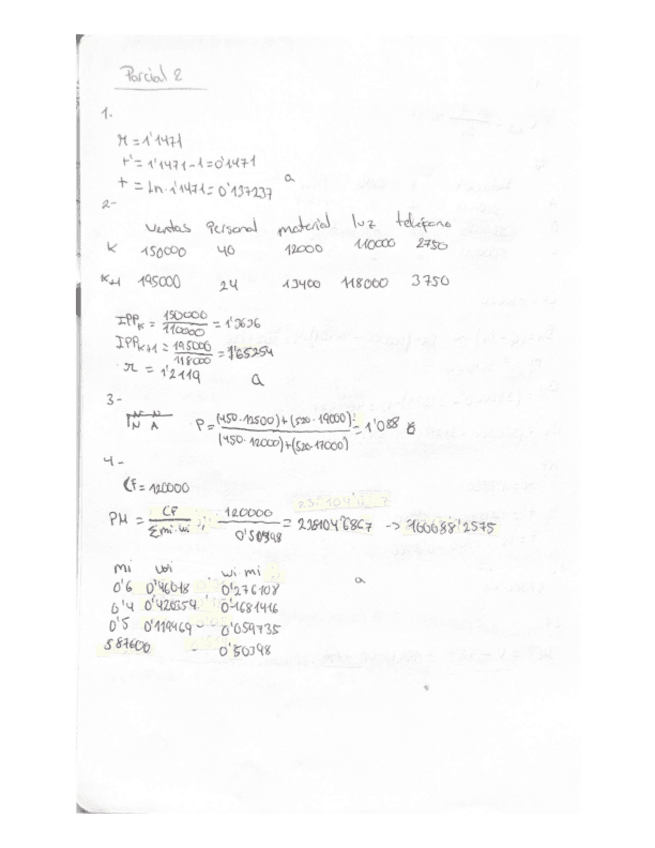 Parcial 2
1.
r = 1'1471
r' = 1'1471 - 1 = 0'1471
r = ln 1'1471 = 0'137237 a
2-
ventas personal material luz teléfono
K 150000 40 12000 110000 2750
K+1 195000 24 13400 118000 3750
IPPK = 150000/110000 = 1'3636
IPPK+1 = 195000/118000 = 1'65254
r = 1'2119 a
3-
P = (450·12500)+(520·19000) / (450·12000)+(520·17000) = 1'088
4-
CF = 120000
PM = CF / Σmi·wi ; 120000 / = →
mi wi wi·mi
0'6 0'46018 0'276108
0'4 0'420354 0'1681416
0'5 0'119469 0'059735
587600 - 0'50398
a